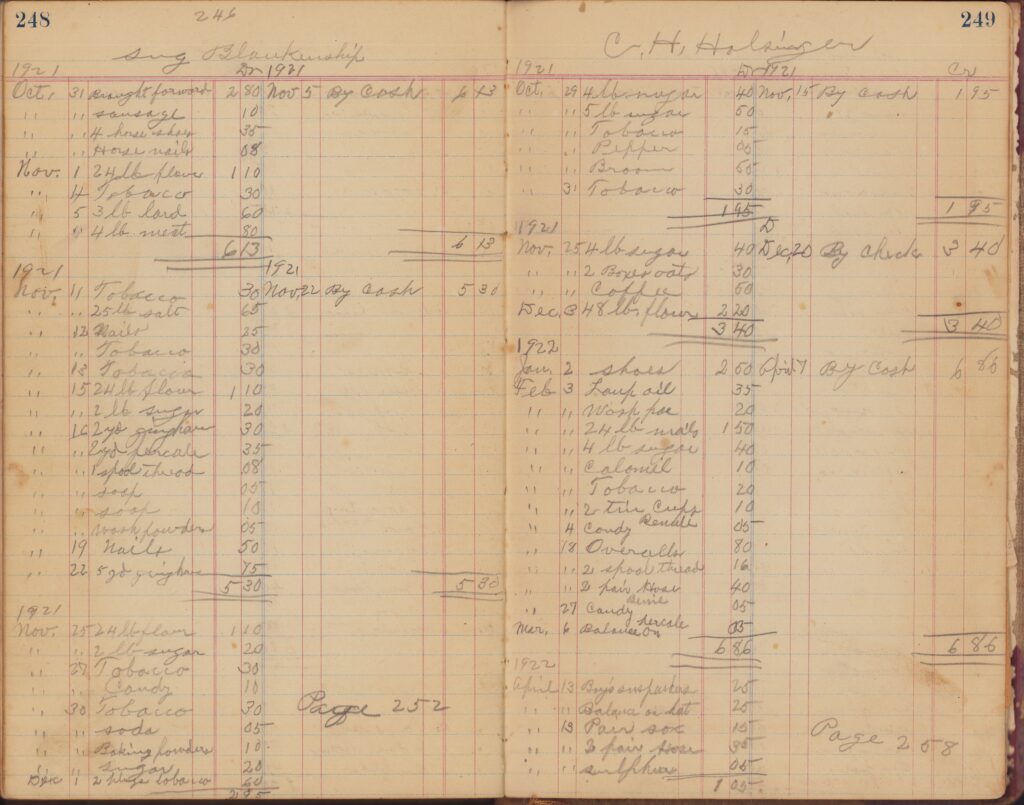 248
246
Blankenship
1921 Dr 1921
Oct. 31 Brought forward 2 80 Nov 5 By Cash 6 13
" " sausage 10
" " 4 horse shoes 35
" " Horse nails 08
Nov. 1 24 lb flour 1 10
" 4 Tobacco 30
" 5 3 lb lard 60
" " 4 lb meat 80
6 13 6 13
1921 1921
Nov. 11 Tobacco 30 Nov, 22 By Cash 5 30
" " 25 lb salt 65
" 12 Nails 25
" " Tobacco 30
" 13 Tobacco 30
" 15 24 lb flour 1 10
" " 2 lb sugar 20
" 16 2 yd gingham 30
" " 2 yd percale 35
" " 1 spool thread 08
" " soap 05
" " soap 10
" " wash powders 05
" 19 Nails 50
" 22 5 yd gingham 75
5 30 5 30
1921
Nov. 25 24 lb flour 1 10
" " 2 lb sugar 20
" 27 Tobacco 30
" " Candy 10
" 30 Tobacco 30 Page 252
" " soda 05
" " Baking powders 10
" " sugar 20
Dec 1 2 plugs tobacco 60
2 95
249
C. H. Holsinger
1921 Dr 1921 Cr
Oct. 29 4 lb sugar 40 Nov, 15 By Cash 1 95
" " 5 lb sugar 50
" " Tobacco 15
" " Pepper 05
" " Broom 55
" 31 Tobacco 30
1 95 1 95
1921 D
Nov. 25 4 lb sugar 40 Dec, 20 By Check 3 40
" " 2 Boxes oats 30
" " Coffee 50
Dec. 3 48 lb. flour 2 20
3 40 3 40
1922
Jan. 2 shoes 2 50 April 7 By Cash 6 86
Feb 3 Lamp oil 35
" " 20
" " 24 lb 1 50
" " 4 lb sugar 40
" " Calomel 10
" " Tobacco 20
" " 2 tin Cups 10
" 4 Candy 05
" 18 Overalls 80
" " 2 spool thread 16
" " 2 pair Hose 40
" 27 Candy 05
Mar, 6 Balance on 05
6 86 6 86
1922
April 13 Boys suspenders 25
" " Balance on hat 25
" 13 Pair sox 15
" " 3 pair Hose 35
Page 258
" " sulphur 05
1 05